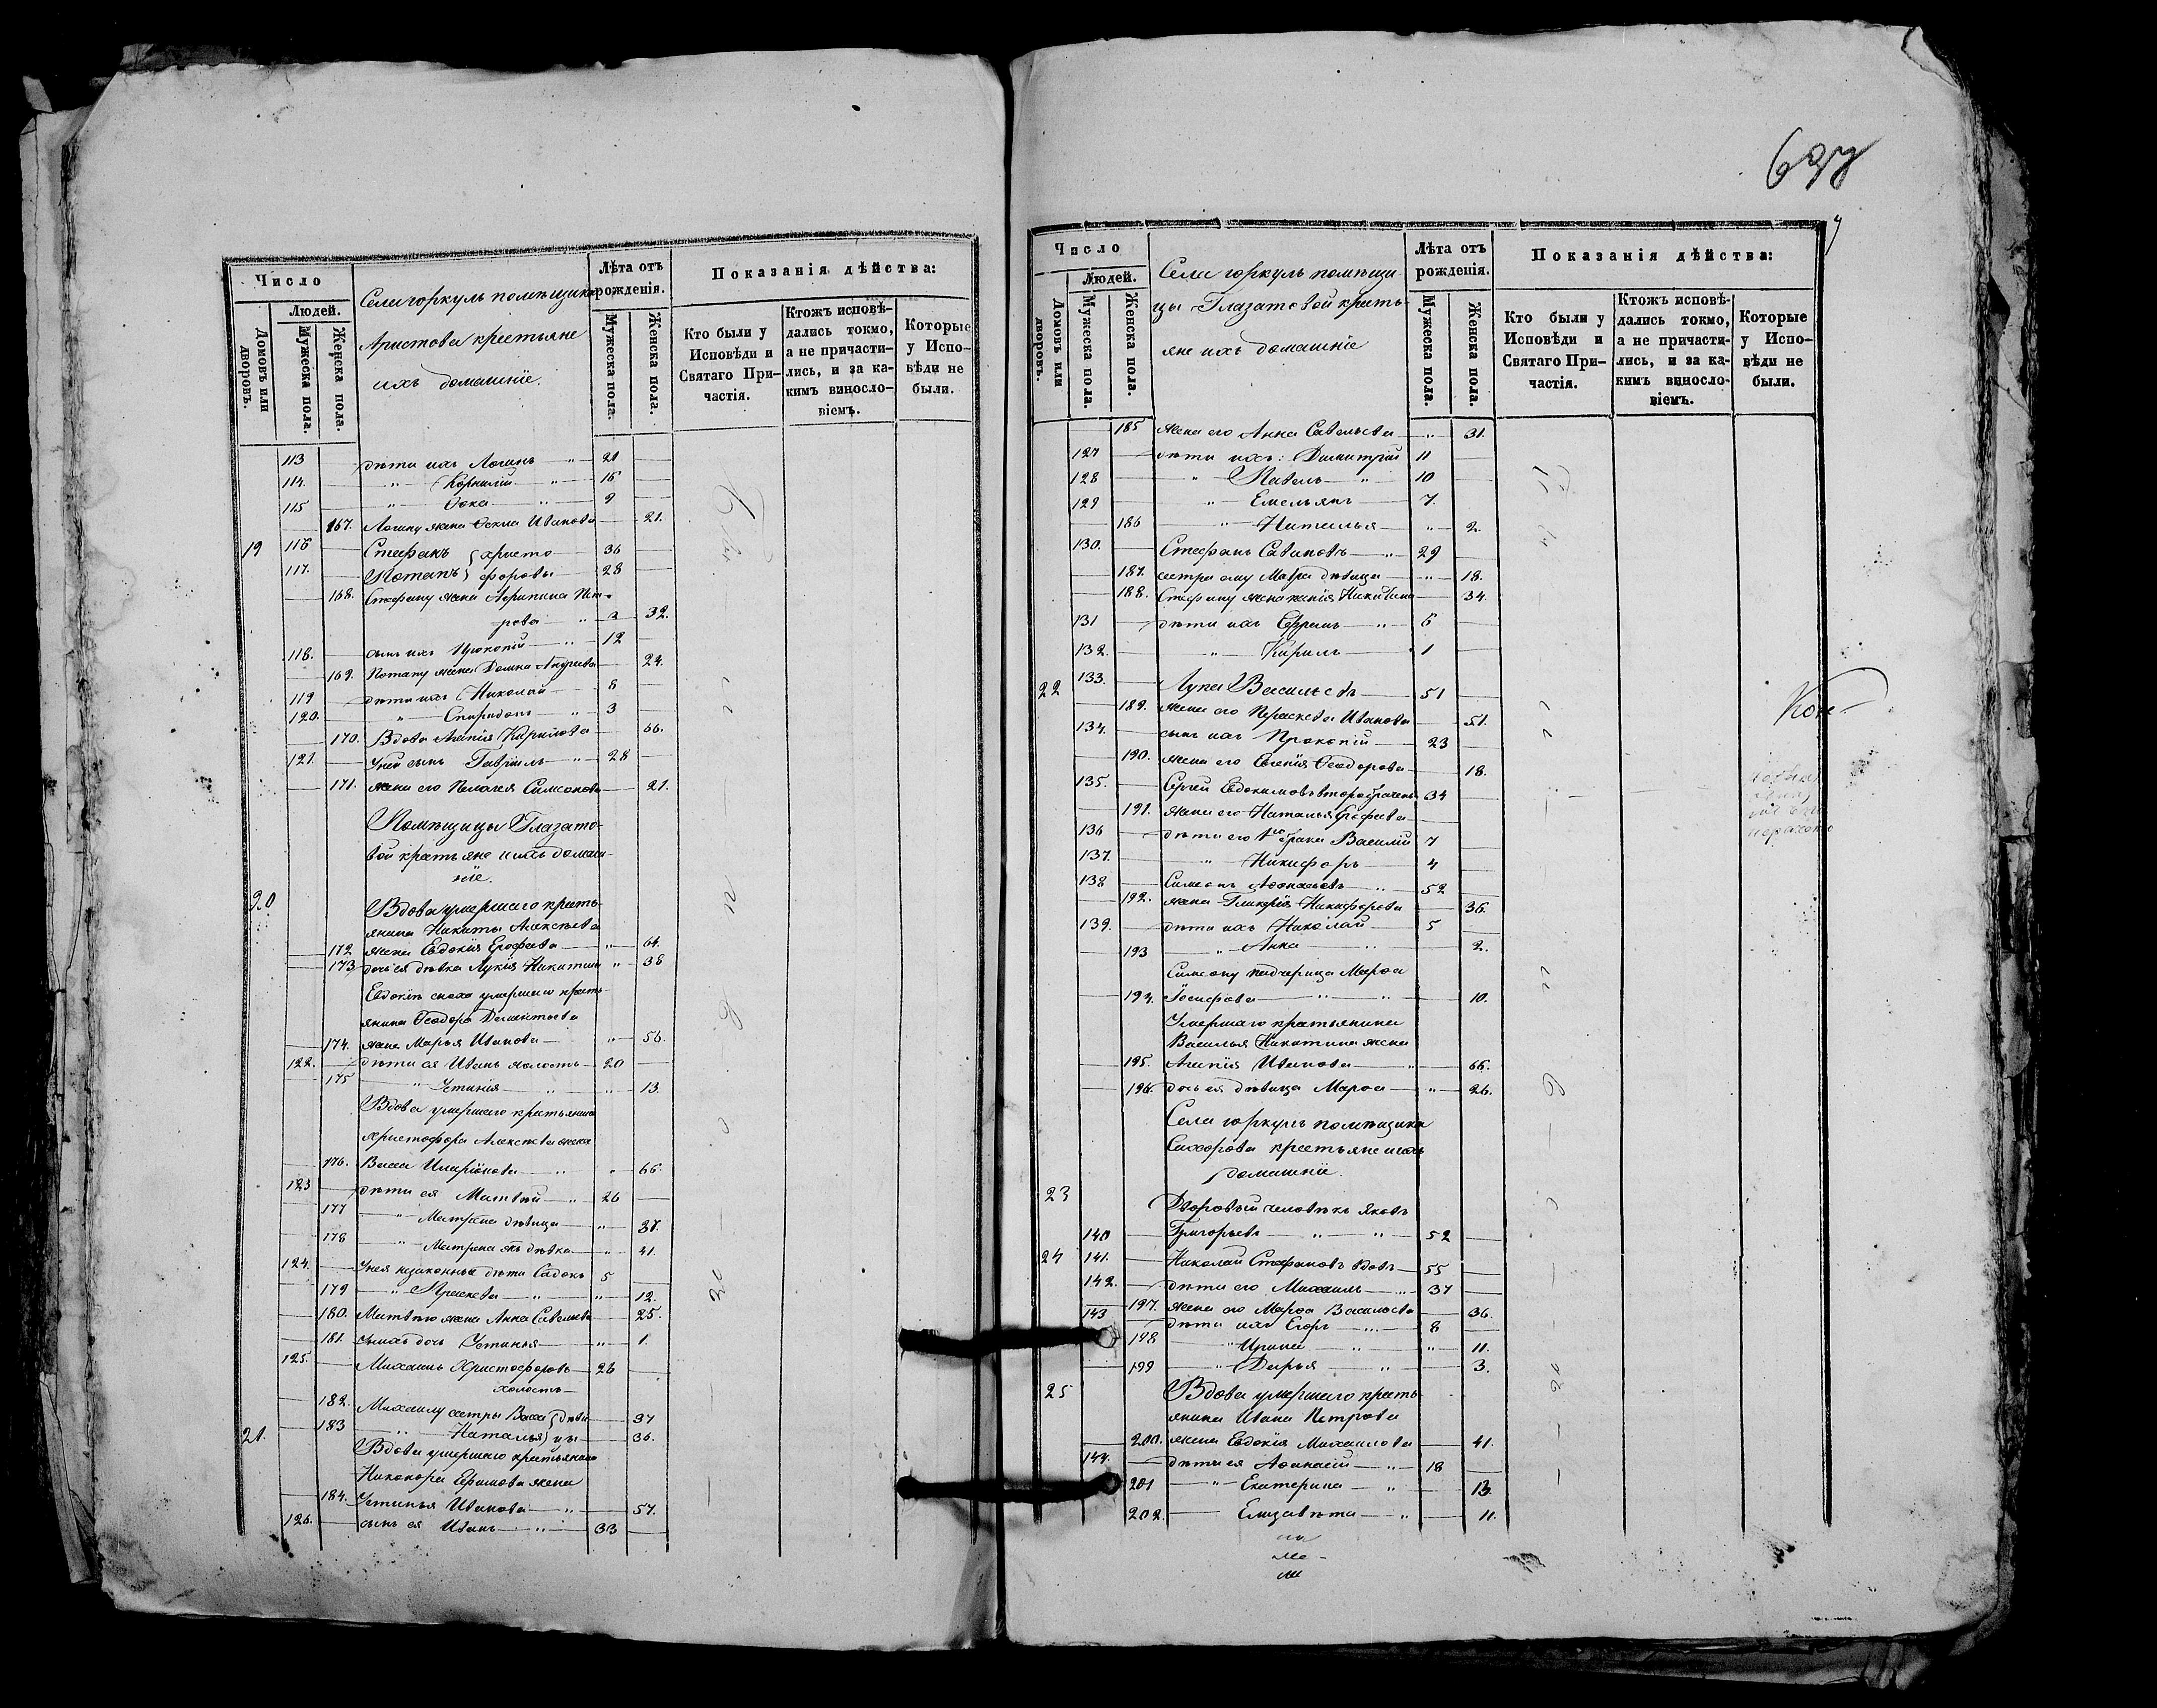 697
Число
Людей.
Домовъ или дворовъ.
Мужеска пола.
Женска пола.
Села горкуль помѣщика
Аристова крестьяне
ихъ домашніе.
Лѣта отъ рожденія.
Мужеска пола.
Женска пола.
Показанія дѣйства:
Кто были у Исповѣди и Святаго Причастія.
Ктожъ исповѣдались токмо, а не причастились, и за какимъ винословіемъ.
Которые у Исповѣди не были.
113 дѣти ихъ Логинъ " 21
114. " Корнилій " 16
115 " Ѳока " 9
167. Логину жена Ѳекла Иванова 21.
19 116 Стефанъ } христо 36
117. Потапъ } форовы 28
168. Стефану жена Агрипина Пет-
рова " 32.
118. сынъ ихъ Прокопій " 12
169. Потапу жена Домна Андреева 24.
119 дѣти ихъ Николай 8
120. " Спиридонъ " 3
170. Вдова Агапія Карпова 66.
121. У ней сынъ Гавріилъ " 28
171. жена его Пелагея Симеонова 21.
Помѣщицы Глазато-
вой крестьяне и ихъ домаш-
ніе.
20 Вдова умершаго кресть-
янина Никиты Алексѣева
172 жена Евдокія Ерофеева " 64.
173 дочь ея дѣвка Лукія Никитина " 38
Евдокіи сноха умершаго кресть-
янина Ѳеодора Дементьева
174. жена Марья Иванова " 56.
122. дѣти ея Иванъ холостъ 20
175 " Устинія " 13.
Вдова умершаго крестьянина
Христофора Алексѣева жена
176. Васса Иларіонова " 66.
123 дѣти ея Матвѣй " 26
177 " Матрена дѣвица " 37.
178 " Матрена дѣвка " 41.
124. У нея незаконные дѣти Садокъ 5
179 " Праскева " 12.
180. Матвѣю жена Анна Савельева 25.
181. у нихъ дочь Устинья " 1.
125. Михаилъ Христофоровъ 26
холостъ
182. Михаилу сестры Васса } дѣви- 37
183 " Наталья } цы 36.
21. Вдова умершаго крестьянина
Никонора Ефимова жена
184. Устинья Иванова " 57.
126. сынъ ея Иванъ " 33
Число
Людей.
Домовъ или дворовъ.
Мужеска пола.
Женска пола.
Села горкуль помѣщи-
цы Глазатовой кресть-
яне ихъ домашніе
Лѣта отъ рожденія.
Мужеска пола.
Женска пола.
Показанія дѣйства:
Кто были у Исповѣди и Святаго Причастія.
Ктожъ исповѣдались токмо, а не причастились, и за какимъ винословіемъ.
Которые у Исповѣди не были.
185 жена его Анна Савельева " 31.
127 дѣти ихъ: Димитрій 11
128 " Павелъ " 10
129 " Емельянъ 7.
186 " Наталья " 2.
130. Стефанъ Савиновъ " 29
187. сестра ему Мавра дѣвица " 18.
188. Стефану жена Никитина 34.
131 дѣти ихъ Ефремъ " 6
132. " Кирилъ 1
22 133. Лука Васильевъ 51
189. жена его Параскева Иванова 51.
134. сынъ ихъ Прокопій 23
190. жена его Евгенія Ѳеодорова 18.
135. Сергей Евдокимовъ второбрачный 34
191. жена его Наталья Ерофеева
136 дѣти его 1го брака Василій 7
137. " Никифоръ 4
138 Симеонъ Аѳанасьевъ " 52
192. жена Гликерія Никифорова 36.
139. дѣти ихъ Николай 5
193 " Анна " 2.
Симеону падчерица Марѳа
194. Іосифова " " 10.
Умершаго крестьянина
Василья Никитина жена
195. Агапія Иванова " 66.
196. дочь ея дѣвица Марѳа " 26.
Села горкуль помѣщика
Сахарова крестьяне и ихъ
домашніе.
23 Дворовый человѣкъ Яковъ
140 Григорьевъ " " 52
24 141. Николай Стефановъ вдовъ 55
142. дѣти его Михаилъ " 37
197. жена его Марѳа Васильева 36.
143 дѣти ихъ Егоръ " 8
198 " Ирина " " 11.
199 " Дарья " 3.
25 Вдова умершаго кресть-
янина Ивана Петрова
200. жена Евдокія Михаилова 41.
144. дѣти ея Аѳанасій " 18
201 " Екатерина " 13
202. Елизавѣта " 11.